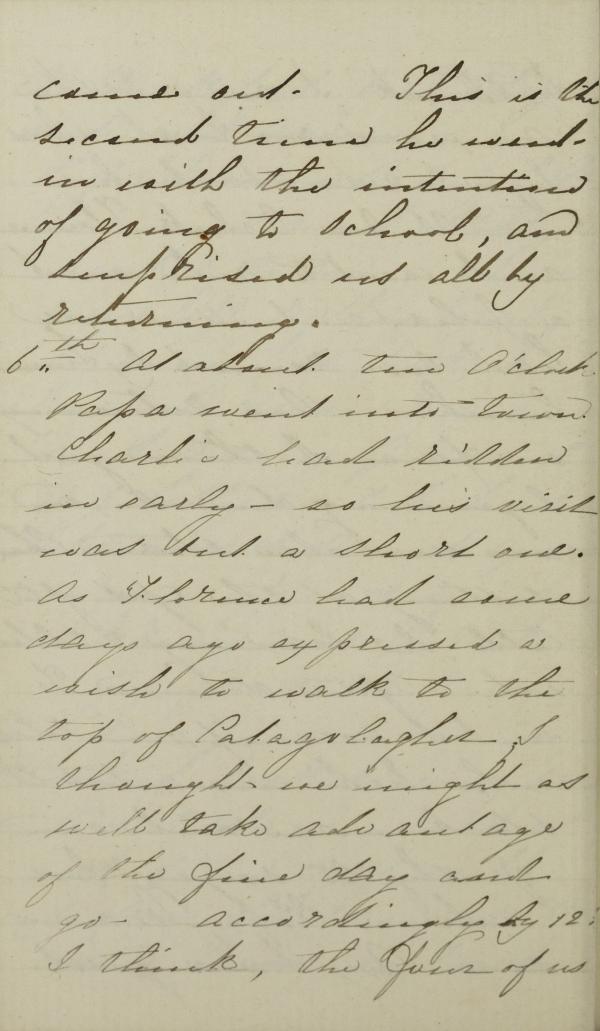 came out. This is the
second time he went
in with the intention
of going to School, and
surprised us all by
returning.
6th At about ten O'clock
Papa went into town
Charlie had ridden
in early - so his visit
was but a short one.
As Florence had some
days ago expressed a
wish to walk to the
top of I
thought we might as
well take advantage
of the fine day and
go - accordingly by 12
I think, the four of us